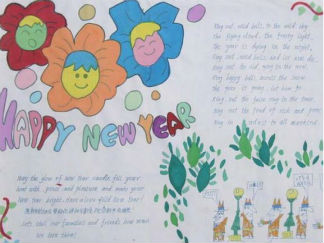 HAPPY NEW YEAR
Ring out wild bells, to the wild sky
The flying cloud, the frosty light,
The year is dying in the night,
Ring out, wild bells, and let him die.
Ring out the old, ring in the new,
Ring happy bells, across the snow.
The year is going, let him go
Ring out the false, ring in the true.
Ring out the feud of rich and poor
Ring in redress to all mankind.
May the glow of New Year candle fill your
heart with peace and pleasure and make your
New Year bright. Have a love-filled New Year!
let's call our families and friends and
we love them!